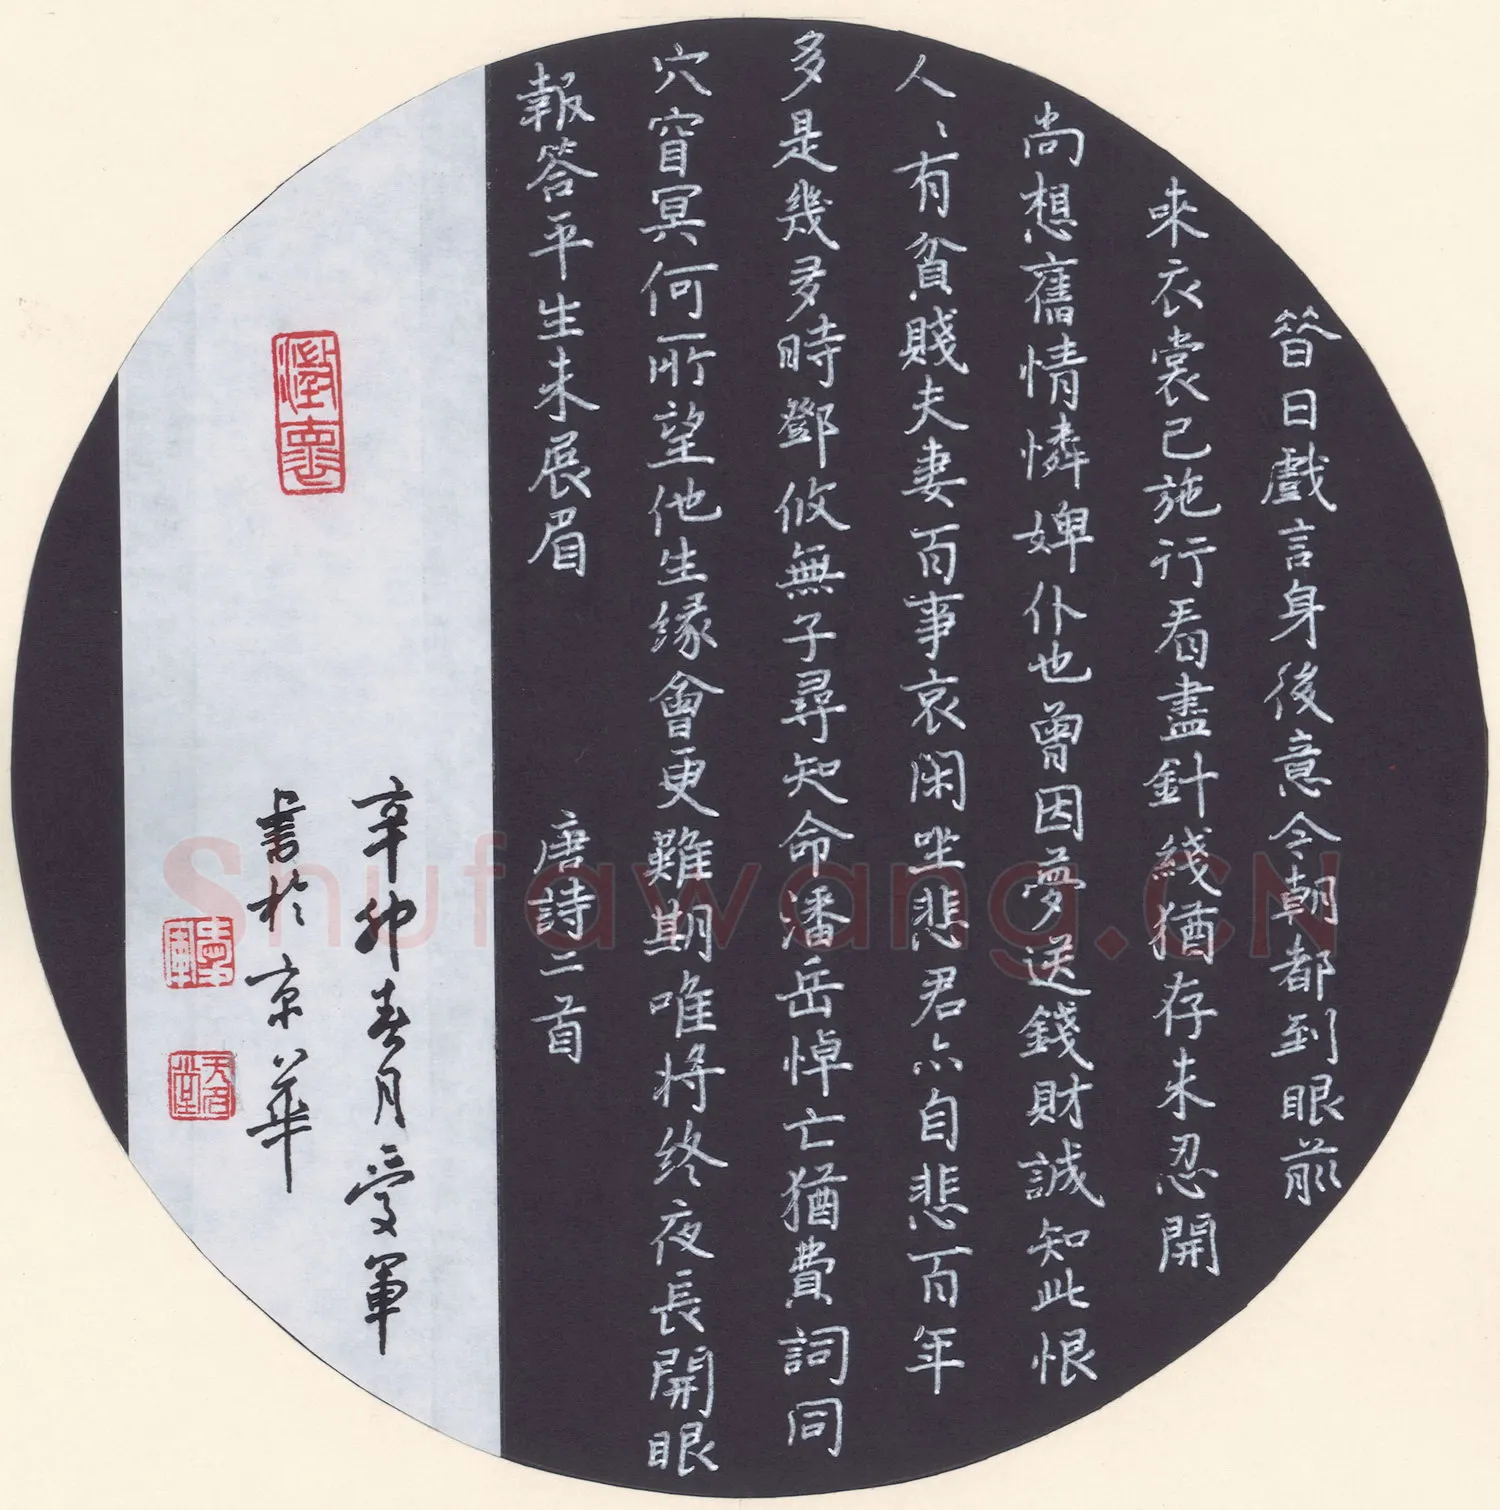 昔日戲言身後意今朝都到眼前
來衣裳已施行看盡針綫猶存未忍開
尚想舊情憐婢仆也曾因夢送錢財誠知此恨
人〻有貧賤夫妻百事哀閑坐悲君亦自悲百年
多是幾多時鄧攸無子尋知命潘岳悼亡猶費詞同
穴窅冥何所望他生緣會更難期唯將終夜長開眼
報答平生未展眉
唐詩二首
辛卯春月受軍
書於京華
澄懷
Shufawang.CN